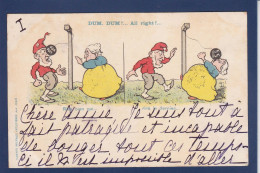 I
DUM, DUM!.. All right!..
Chère Amie Je suis tout à
fait patraque et incapable
de bouger tout ces temps
ci il m'est impossible d'aller